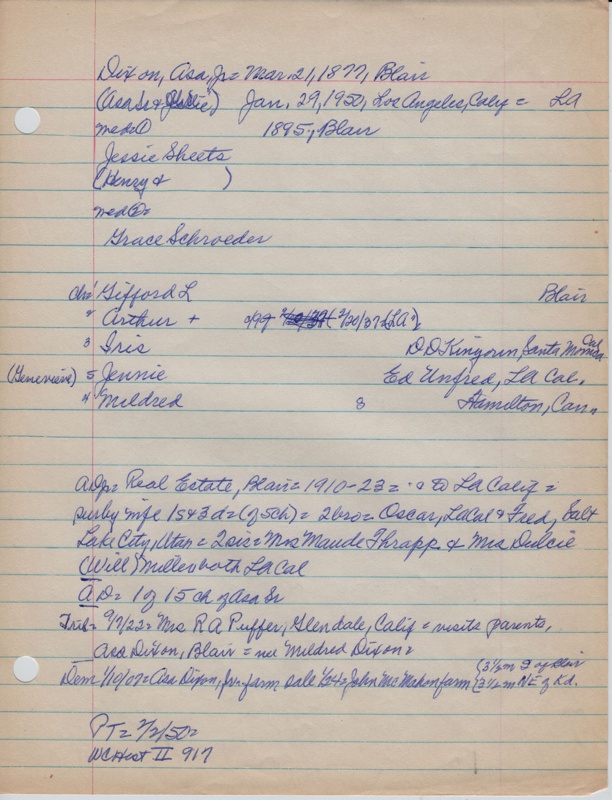 Dixon, Asa, Jr = Mar. 21, 1877, Blair
(Asa Sr & ) Jan. 29, 1950, Los Angeles, Calif = LA
med ① 1895, Blair
Jessie Sheets
(Henry & )
med ②=
Grace Schroeder
ch: Gifford L Blair
" Arthur + (2/20/37 LA)
3 Iris D D Kingourn, Santa Monica Cal
(Genevieve) 5 Jennie Ed Unfred, LA Cal.
4 Mildred 8 Hamilton, Can.
ADjr = Real Estate, Blair = 1910-23 = to LA Calif =
sur by wife 1s & 3d = (of 5ch) = 2bro = Oscar, LaCal & Fred, Salt
Lake City, Utah = 2sis = Mrs Maude Thrapp & Mrs Dulcie
(Will) both LA Cal
AD = 1 of 15 ch of Asa Sr
Trib = 9/7/22 = Mrs R A Puffer, Glendale, Calif = visits parents,
Asa Dixon, Blair = nee Mildred Dixon =
Dem 1/10/07 = Asa Dixon, Jr = farm sale 1/24 = John McMahon farm (3½ m S of Blair
2½ m NE of Kd.
PT = 2/2/50 =
WC Hist II 917